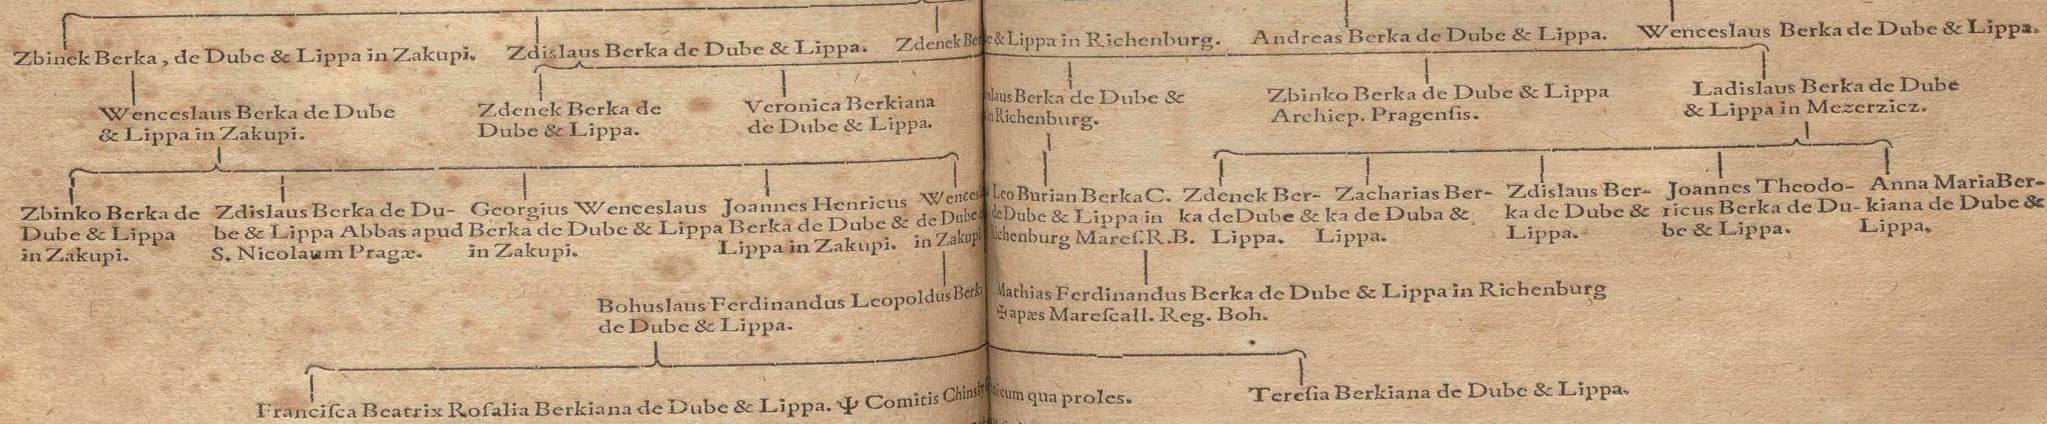 Zbinek Berka, de Dube & Lippa in Zakupi.
Zdislaus Berka de Dube & Lippa.
Zdenek & Lippa in Richenburg.
Andreas Berka de Dube & Lippa.
Wenceslaus Berka de Dube & Lippa.
Wenceslaus Berka de Dube
& Lippa in Zakupi.
Zdenek Berka de
Dube & Lippa.
Veronica Berkiana
de Dube & Lippa.
Berka de Dube &
Richenburg.
Zbinko Berka de Dube & Lippa
Archiep. Pragenſis.
Ladislaus Berka de Dube
& Lippa in Mezerzicz.
Zbinko Berka de
Dube & Lippa
in Zakupi.
Zdislaus Berka de Du-
be & Lippa Abbas apud
S. Nicolaum Pragæ.
Georgius Wenceslaus
Berka de Dube & Lippa
in Zakupi.
Joannes Henricus
Berka de Dube &
Lippa in Zakupi.
de Dube
in Zakupi
Leo Burian Berka C.
de Dube & Lippa in
Mareſ. R. B.
Zdenek Ber-
ka de Dube &
Lippa.
Zacharias Ber-
ka de Duba &
Lippa.
Zdislaus Ber-
ka de Dube &
Lippa.
Joannes Theodo-
ricus Berka de Du-
be & Lippa.
Anna Maria Ber-
kiana de Dube &
Lippa.
Bohuslaus Ferdinandus Leopoldus
de Dube & Lippa.
Mathias Ferdinandus Berka de Dube & Lippa in Richenburg
Mareſcall. Reg. Boh.
Franciſca Beatrix Roſalia Berkiana de Dube & Lippa. Ψ Comitis qua proles.
Tereſia Berkiana de Dube & Lippa.